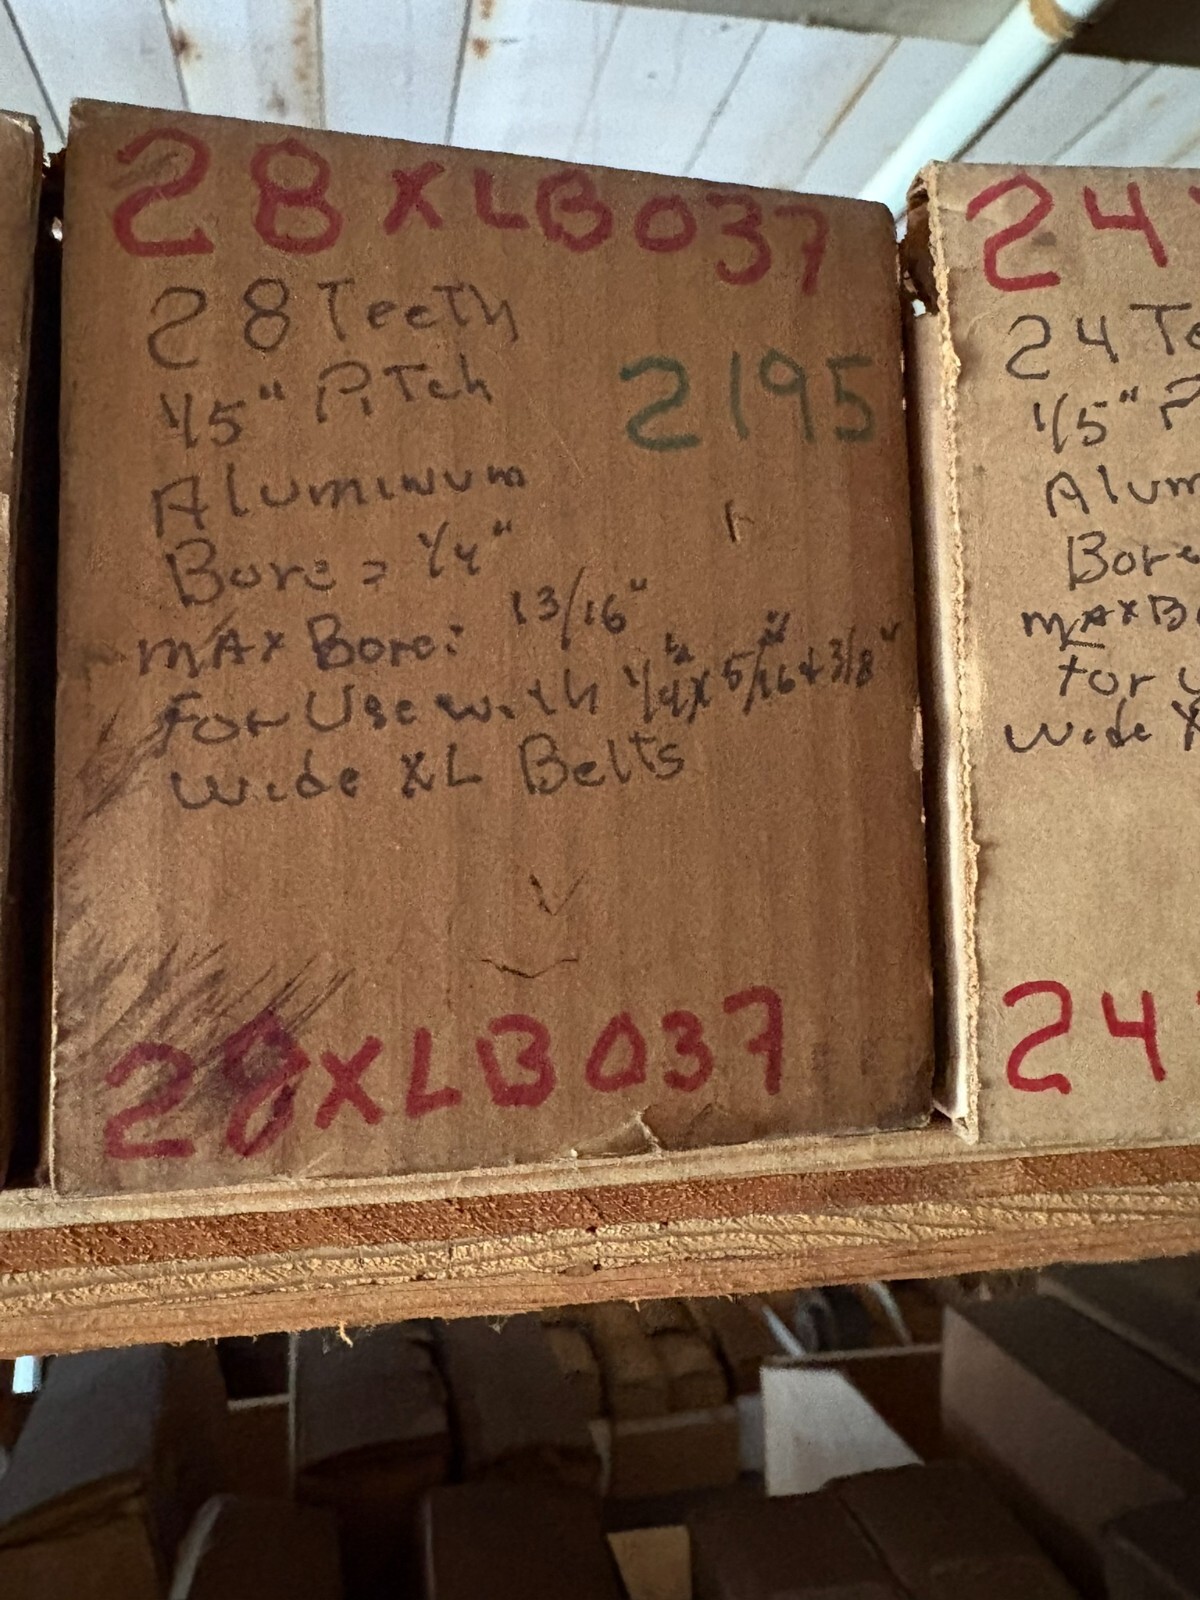 28XLB037
28 Teeth
1/5" PiTch
2195
Aluminum
Bore = 1/4"
mAx Bore: 13/16"
For Use with 1/4 x 5/16 + 3/8"
wide XL Belts
28XLB037
24
24 Te
1/5" P
Alum
Bore
mAxBo
for U
wide X
24